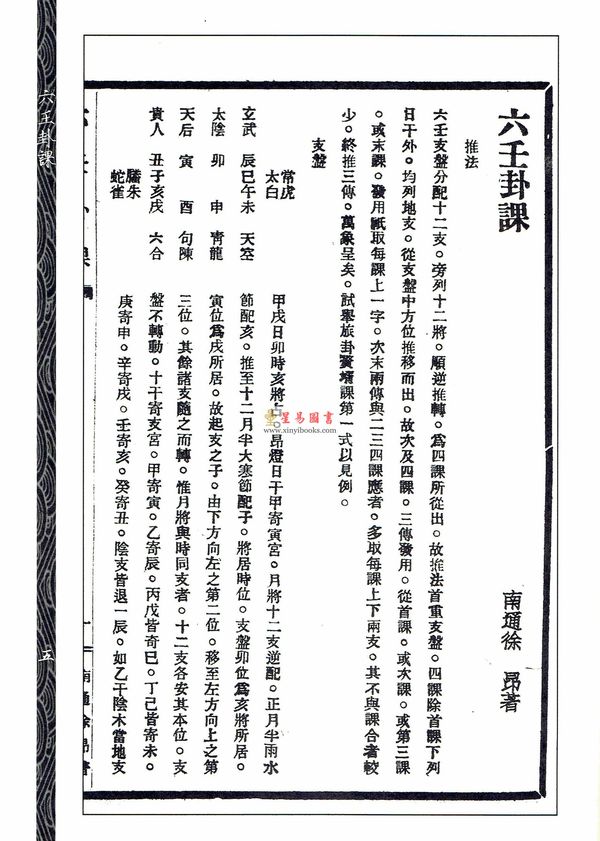 六壬卦課
五
六壬卦課
南通徐 昂著
推法
六壬支盤分配十二支。旁列十二將。順逆推轉。為四課所從出。故推法首重支盤。四課除首課下列
日干外。均列地支。從支盤中方位推移而出。故次及四課。三傳發用。從首課。或次課。或第三課
。或末課。發用祇取每課上一字。次末兩傳與二三四課應者。多取每課上下兩支。其不與課合者較
少。終推三傳。萬象呈矣。試舉旅卦贅壻課第一式以見例。
支盤
常虎
太白
玄武 辰巳午未 天空
太陰 卯 申 青龍
天后 寅 酉 句陳
貴人 丑子亥戌 六合
螣朱
蛇雀
甲戌日卯時亥將占。昂燈日干甲寄寅宮。月將十二支逆配。正月半雨水
節配亥。推至十二月半大寒節配子。將居時位。支盤卯位為亥將所居。
寅位為戌所居。故起支之子。由下方向左之第二位。移至左方向上之第
三位。其餘諸支隨之而轉。惟月將與時同支者。十二支各安其本位。支
盤不轉動。十干寄支宮。甲寄寅。乙寄辰。丙戊皆寄巳。丁己皆寄未。
庚寄申。辛寄戌。壬寄亥。癸寄丑。陰支皆退一辰。如乙干陰木當地支
南通徐昂著
星易圖書
www.xinyibooks.com